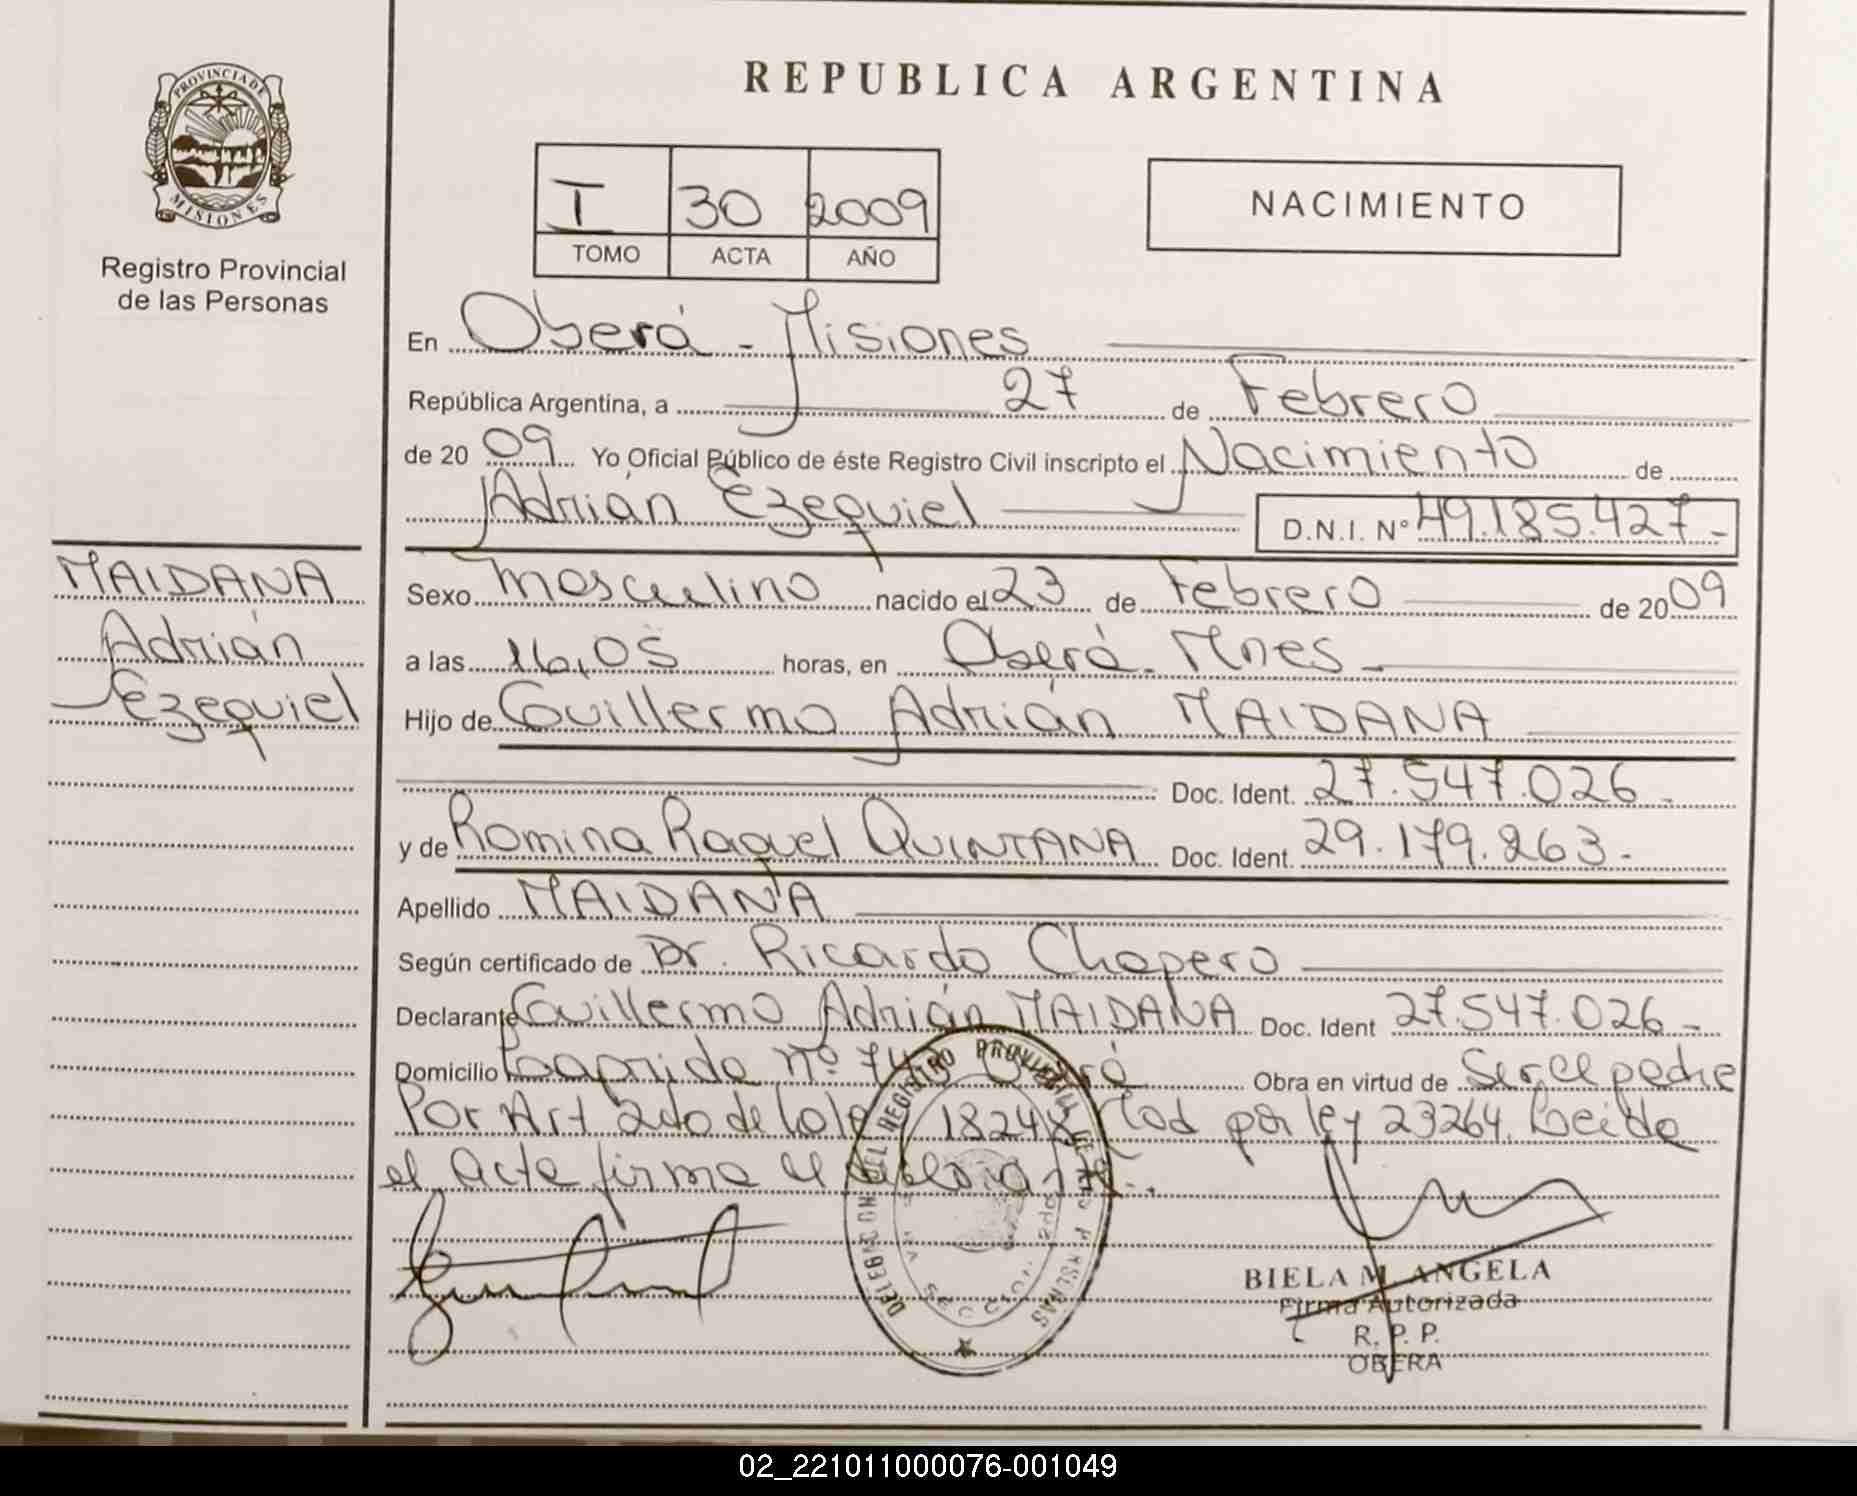 PROVINCIA DE
MISIONES
Registro Provincial
de las Personas
MAIDANA
Adrián
Ezequiel
REPUBLICA ARGENTINA
I 30 2009
TOMO ACTA AÑO
NACIMIENTO
En Oberá - Misiones
República Argentina, a 27 de Febrero
de 2009 Yo Oficial Público de éste Registro Civil inscripto el Nacimiento de
Adrián Ezequiel D.N.I. Nº 49.185.427-
Sexo masculino nacido el 23 de Febrero de 2009
a las 16,05 horas, en Oberá - Mnes -
Hijo de Guillermo Adrián MAIDANA
Doc. Ident. 27.547.026 -
y de Romina Raquel QUINTANA Doc. Ident. 29.179.263.-
Apellido MAIDANA
Según certificado de Dr. Ricardo Chapero
Declarante Guillermo Adrián MAIDANA Doc. Ident 27.547.026 -
Domicilio Laprida nº Oberá Obra en virtud de Ser el padre
Por Art 2do de la 18248 Mod por ley 23264. Leida
el acta firma el declarante.
DELEGACION DEL REGISTRO PROVINCIAL DE LAS PERSONAS
SECCION 2da
BIELA M. ANGELA
Firma Autorizada
R. P. P.
OBERA
02_221011000076-001049